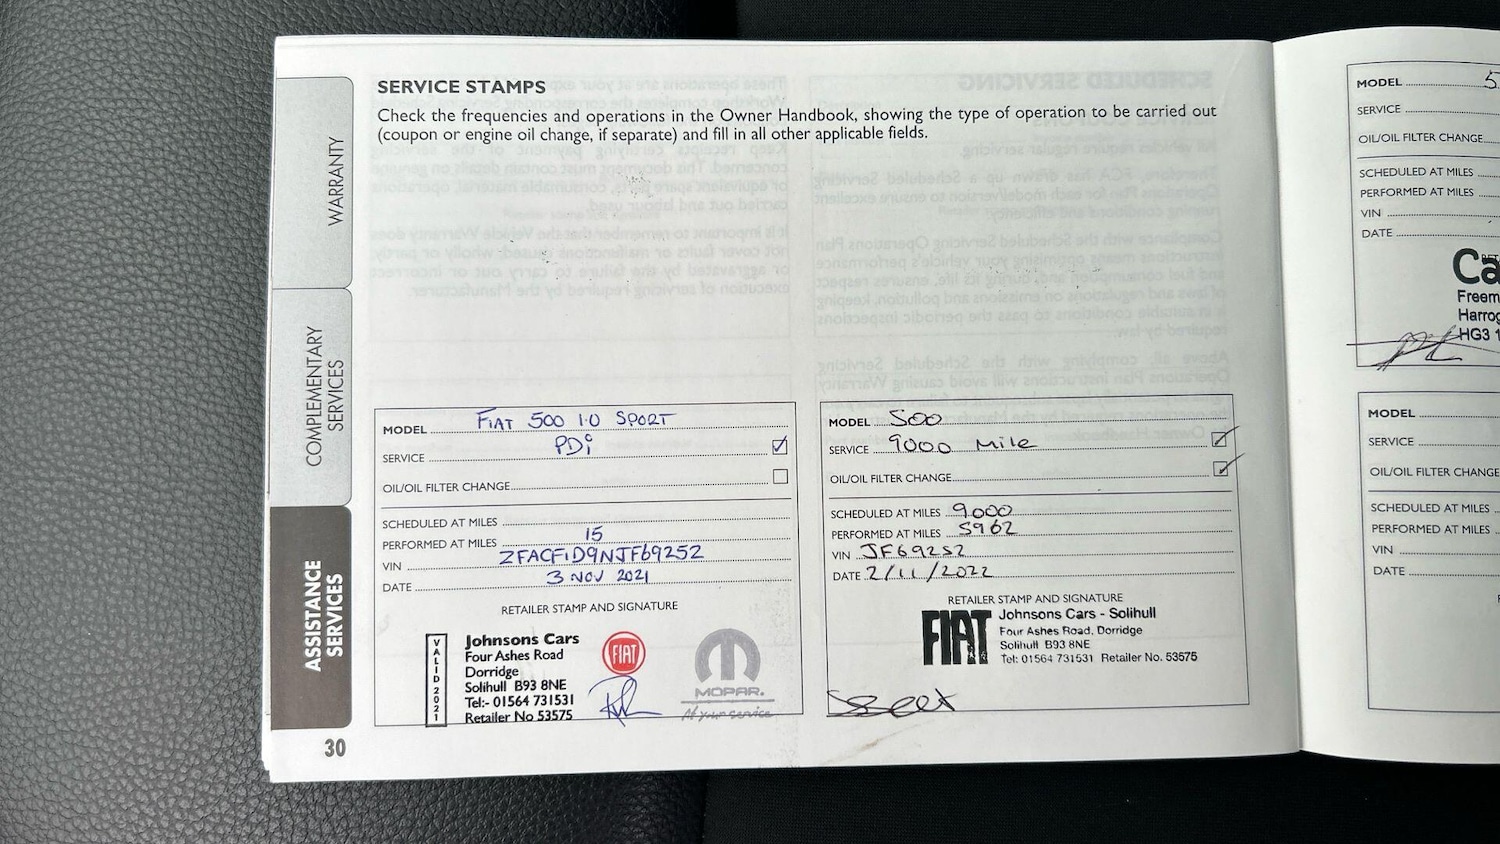 SERVICE STAMPS
Check the frequencies and operations in the Owner Handbook, showing the type of operation to be carried out
(coupon or engine oil change, if separate) and fill in all other applicable fields.
WARRANTY
COMPLEMENTARY
SERVICES
ASSISTANCE
SERVICES
MODEL FIAT 500 1.0 SPORT
SERVICE PDi
OIL/OIL FILTER CHANGE
SCHEDULED AT MILES
PERFORMED AT MILES 15
VIN ZFACF1D9NJF69252
DATE 3 NOV 2021
RETAILER STAMP AND SIGNATURE
VALID 2021
Johnsons Cars
Four Ashes Road
Dorridge
Solihull B93 8NE
Tel:- 01564 731531
Retailer No 53575
FIAT
MOPAR.
At your service
MODEL 500
SERVICE 9000 Mile
OIL/OIL FILTER CHANGE
SCHEDULED AT MILES 9000
PERFORMED AT MILES 5962
VIN JF69252
DATE 2/11/2022
RETAILER STAMP AND SIGNATURE
FIAT
Johnsons Cars - Solihull
Four Ashes Road, Dorridge
Solihull B93 8NE
Tel: 01564 731531 Retailer No. 53575
30
MODEL 5
SERVICE
OIL/OIL FILTER CHANGE
SCHEDULED AT MILES
PERFORMED AT MILES
VIN
DATE
Ca
Freem
Harrog
HG3 1
MODEL
SERVICE
OIL/OIL FILTER CHANGE
SCHEDULED AT MILES
PERFORMED AT MILES
VIN
DATE